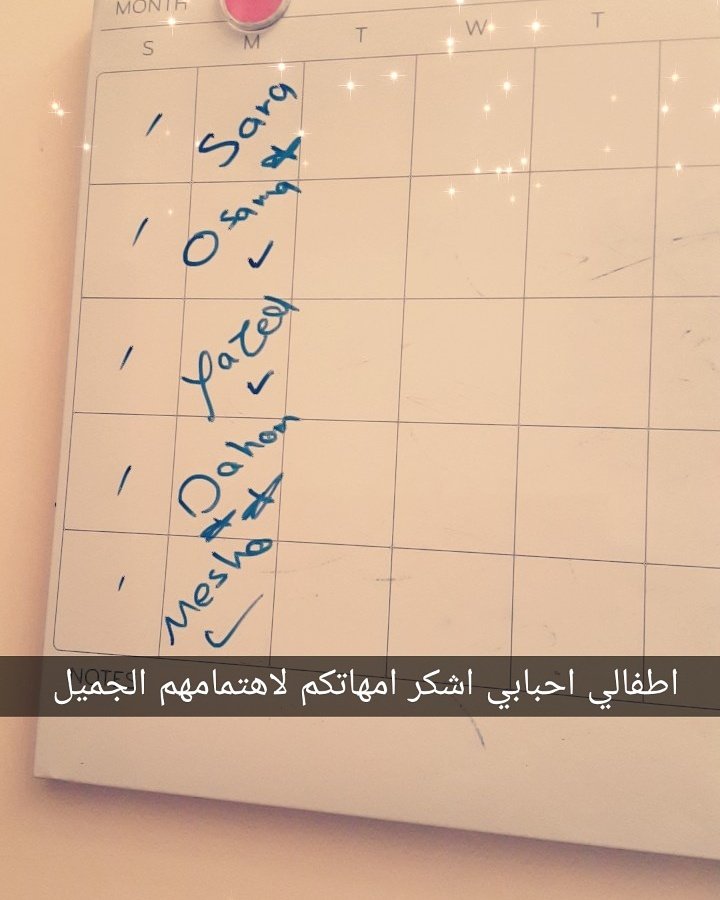 MONTH
S M T W T
Sara
Osama
Yazeed
Dahom
Mesho
اطفالي احبابي اشكر امهاتكم لاهتمامهم الجميل
NOTES